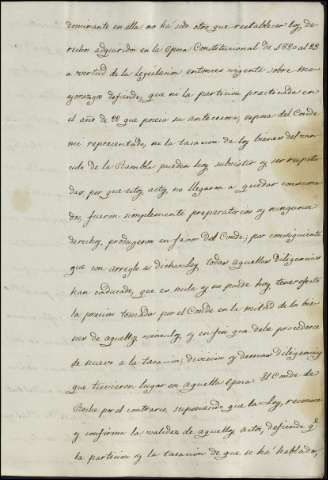 dominante en ella no ha sido otro que restablecer los de-
rechos adquiridos en la época Constitucional de 1820 al 23
a virtud de la legislacion entonces vigente sobre ma-
yorazgos defiende, que ni la particion practicada en
el año de 22 que poseia su antecesora, esposa del Conde
mi representado, ni la tasacion de los bienes del vin-
culo de la Rambla pueden hoy subsistir y ser respeta-
dos, por que estos actos no llegaron a quedar consuma-
dos, fueron simplemente preparatorios y ningunos
derechos produgeron en favor del Conde; por consiguiente
que con arreglo a dicha ley, todas aquellas diligencias
han caducado, que es nula y no puede hoy tener efecto
la posesion tomada por el Conde en la mitad de los bie-
nes de aquellos vinculos y en fin que debe procederse
de nuevo a la tasacion, division y demas diligencias
que tuvieron lugar en aquella época. El Conde de
por el contrario, suponiendo que la ley, reconoce
y confirma la validez de aquellos actos, defiende qe
la particion y la tasacion de que se ha hablado,